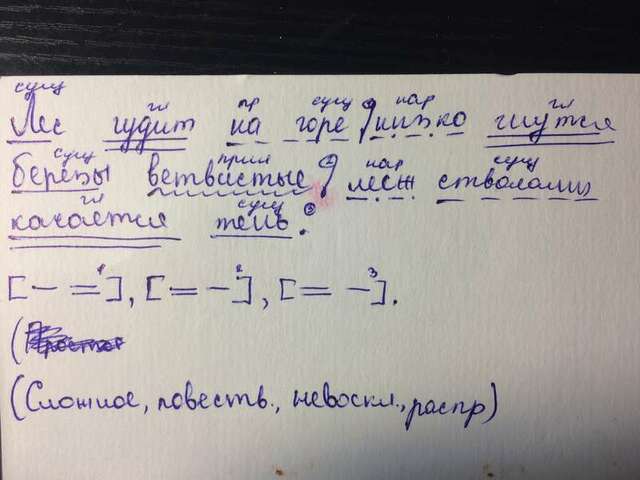 сущ гл пр сущ нар гл
Лес гудит на горе, низко гнутся
сущ прил 2 нар сущ
берёзы ветвистые, меж стволами
гл сущ 3
качается тень.
[– =]¹, [= –]², [= –]³.
(
(Сложное, повеств., невоскл., распр)